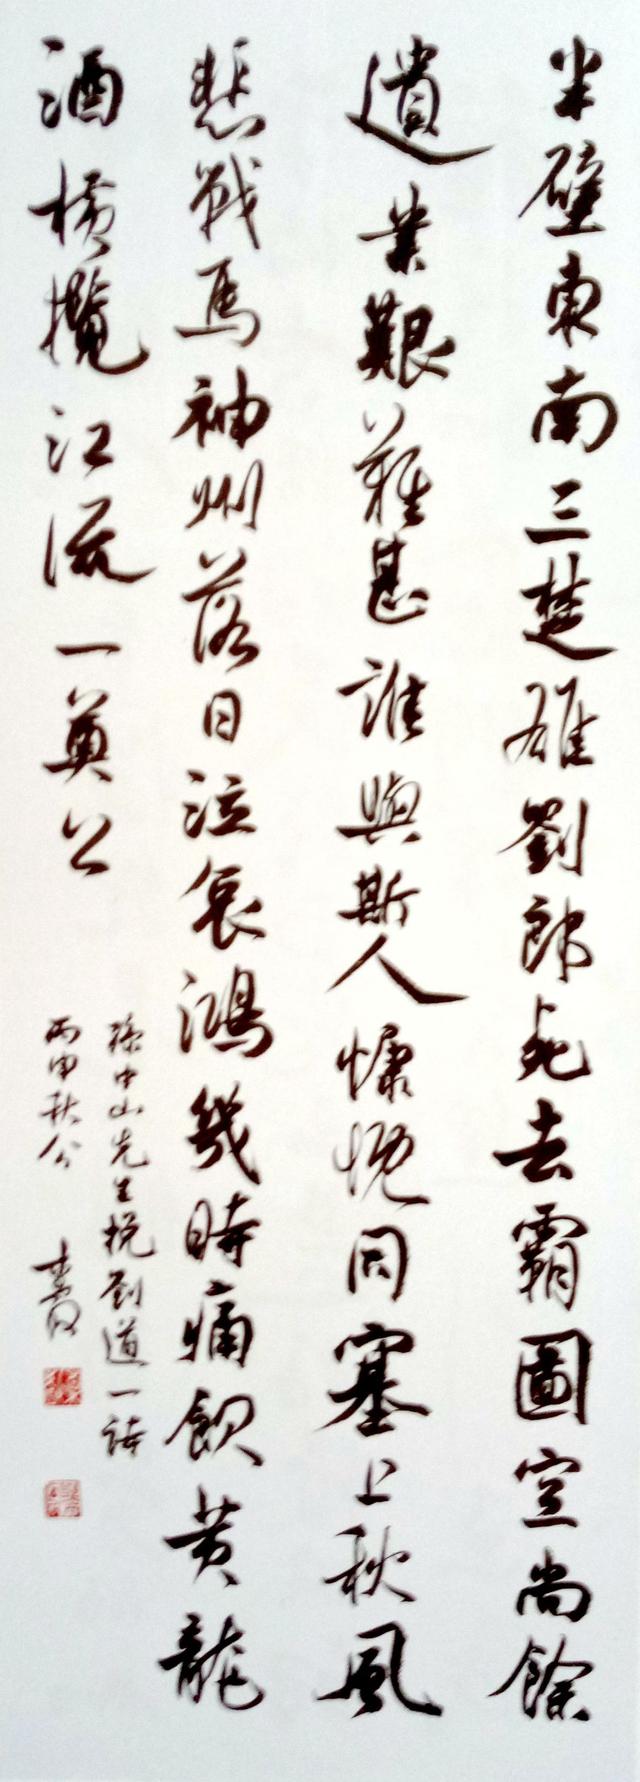 半壁東南三楚雄劉郎死去霸圖空尚餘
遺業艱難甚誰與斯人慷慨同塞上秋風
悲戰馬神州落日泣哀鴻幾時痛飲黃龍
酒橫攬江流一奠公
孫中山先生挽刘道一詩
丙申秋分